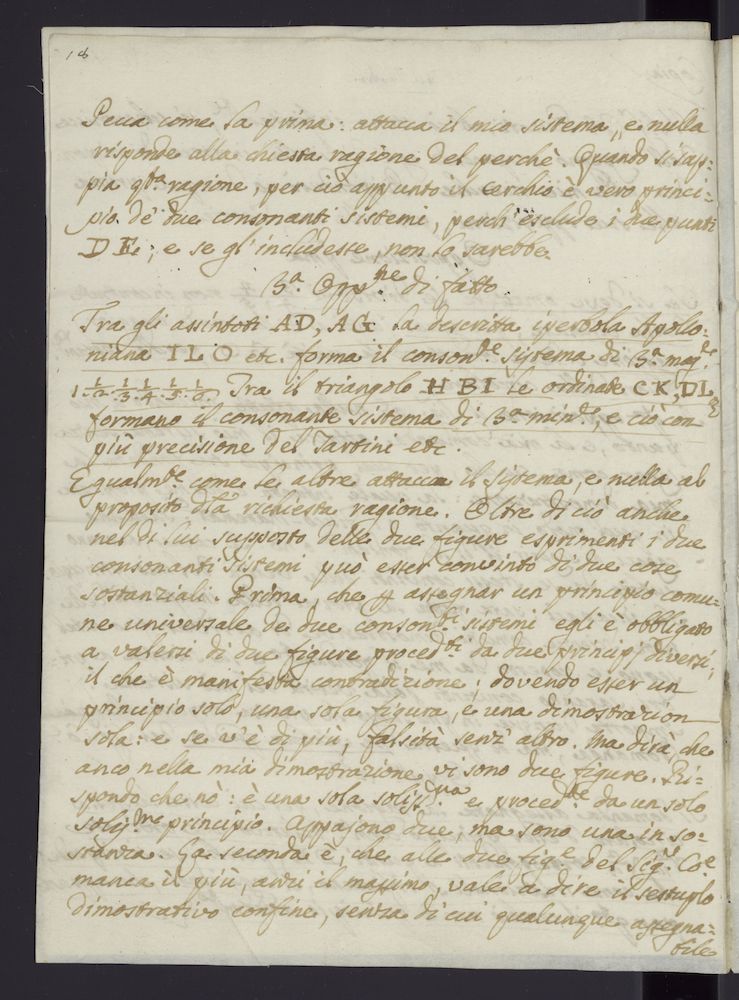 18
Pecca come la prima: attacca il mio sistema, e nulla
risponde alla chiesta ragione del perchè. Quando si sap=
pia qta ragione, per ciò appunto il cerchio è vero princi=
pio de' due consonanti sistemi, perch'esclude i due punti
D E; e se gl'includesse, non lo sarebbe.
3a. Oppne di fatto
Tra gli assintoti AD, AG la descritta iperbola Apollo:
niana ILO etc. forma il consonte sistema di 3a magre
1. 1/2. 1/3. 1/4. 1/5. 1/6. Tra il triangolo HBI le ordinate CK, DL
formano il consonante sistema di 3a minre, e ciò con
più precisione del Tartini etc.
Egualmte come le altre attacca il sistema, e nulla al
proposito dla richiesta ragione. Oltre di ciò anche
nel di lui supposto delle due figure esprimenti i due
consonanti sistemi può esser convinto di due cose
sostanziali. Prima, che p assegnar un principio comu=
ne universale de due consonti sistemi egli è obbligato
a valersi di due figure procedti da due principj diversi,
il che è manifesta contradizione; dovendo esser un
principio solo, una sola figura, e una dimostrazion
sola: e se v'è di più, falsità senz'altro. Ma dirà, che
anco nella mia dimostrazione vi sono due figure. Ri=
spondo che nò: è una sola e procedte da un solo
principio. Appajono due, ma sono una in so=
stanza. La seconda è, che alle due fige del Sigr Coe
manca il più, anzi il massimo, vale a dire il sestuplo
dimostrativo confine, senza di cui qualunque assegna=
bile